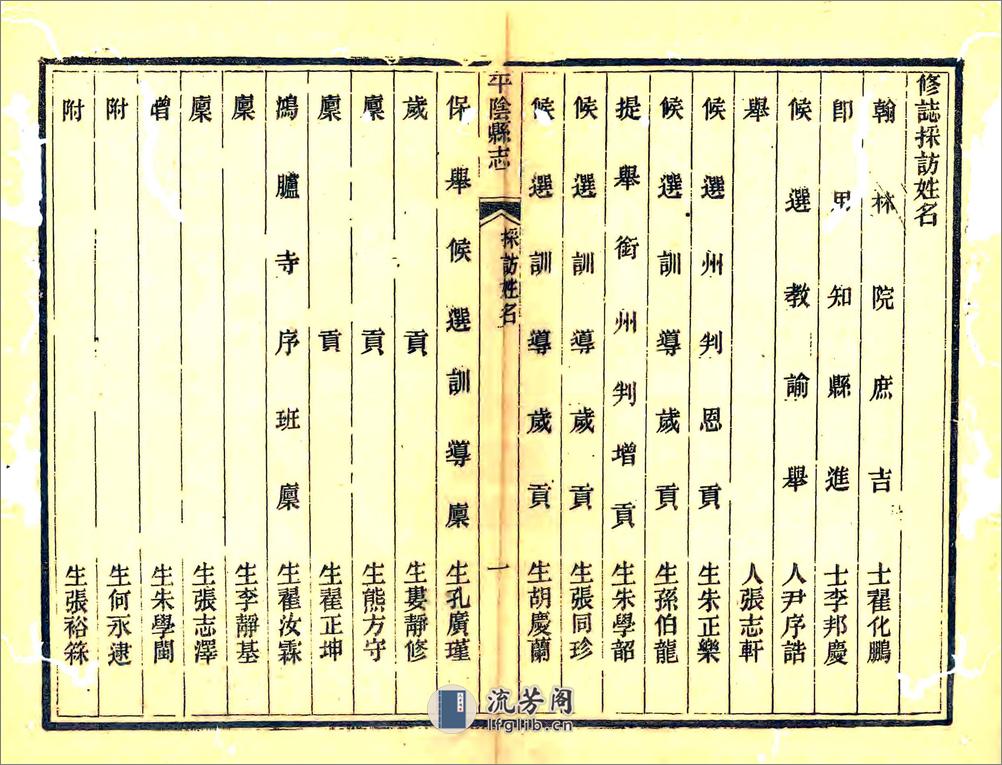 修誌採訪姓名
翰林院庶吉士翟化鵬
即用知縣進士李邦慶
候選教諭舉人尹序誥
舉人張志軒
候選州判恩貢生朱正樂
候選訓導歲貢生孫伯龍
提舉銜州判增貢生朱學韶
候選訓導歲貢生張同珍
候選訓導歲貢生胡慶蘭
平陰縣志
採訪姓名
一
保舉候選訓導廩生孔廣瑾
歲貢生婁靜修
廩貢生熊方守
廩貢生翟正坤
鴻臚寺序班廩生翟汝霖
廩生李靜基
廩生張志澤
增生朱學閩
附生何永建
附生張裕
流芳阁
lfglib.cn